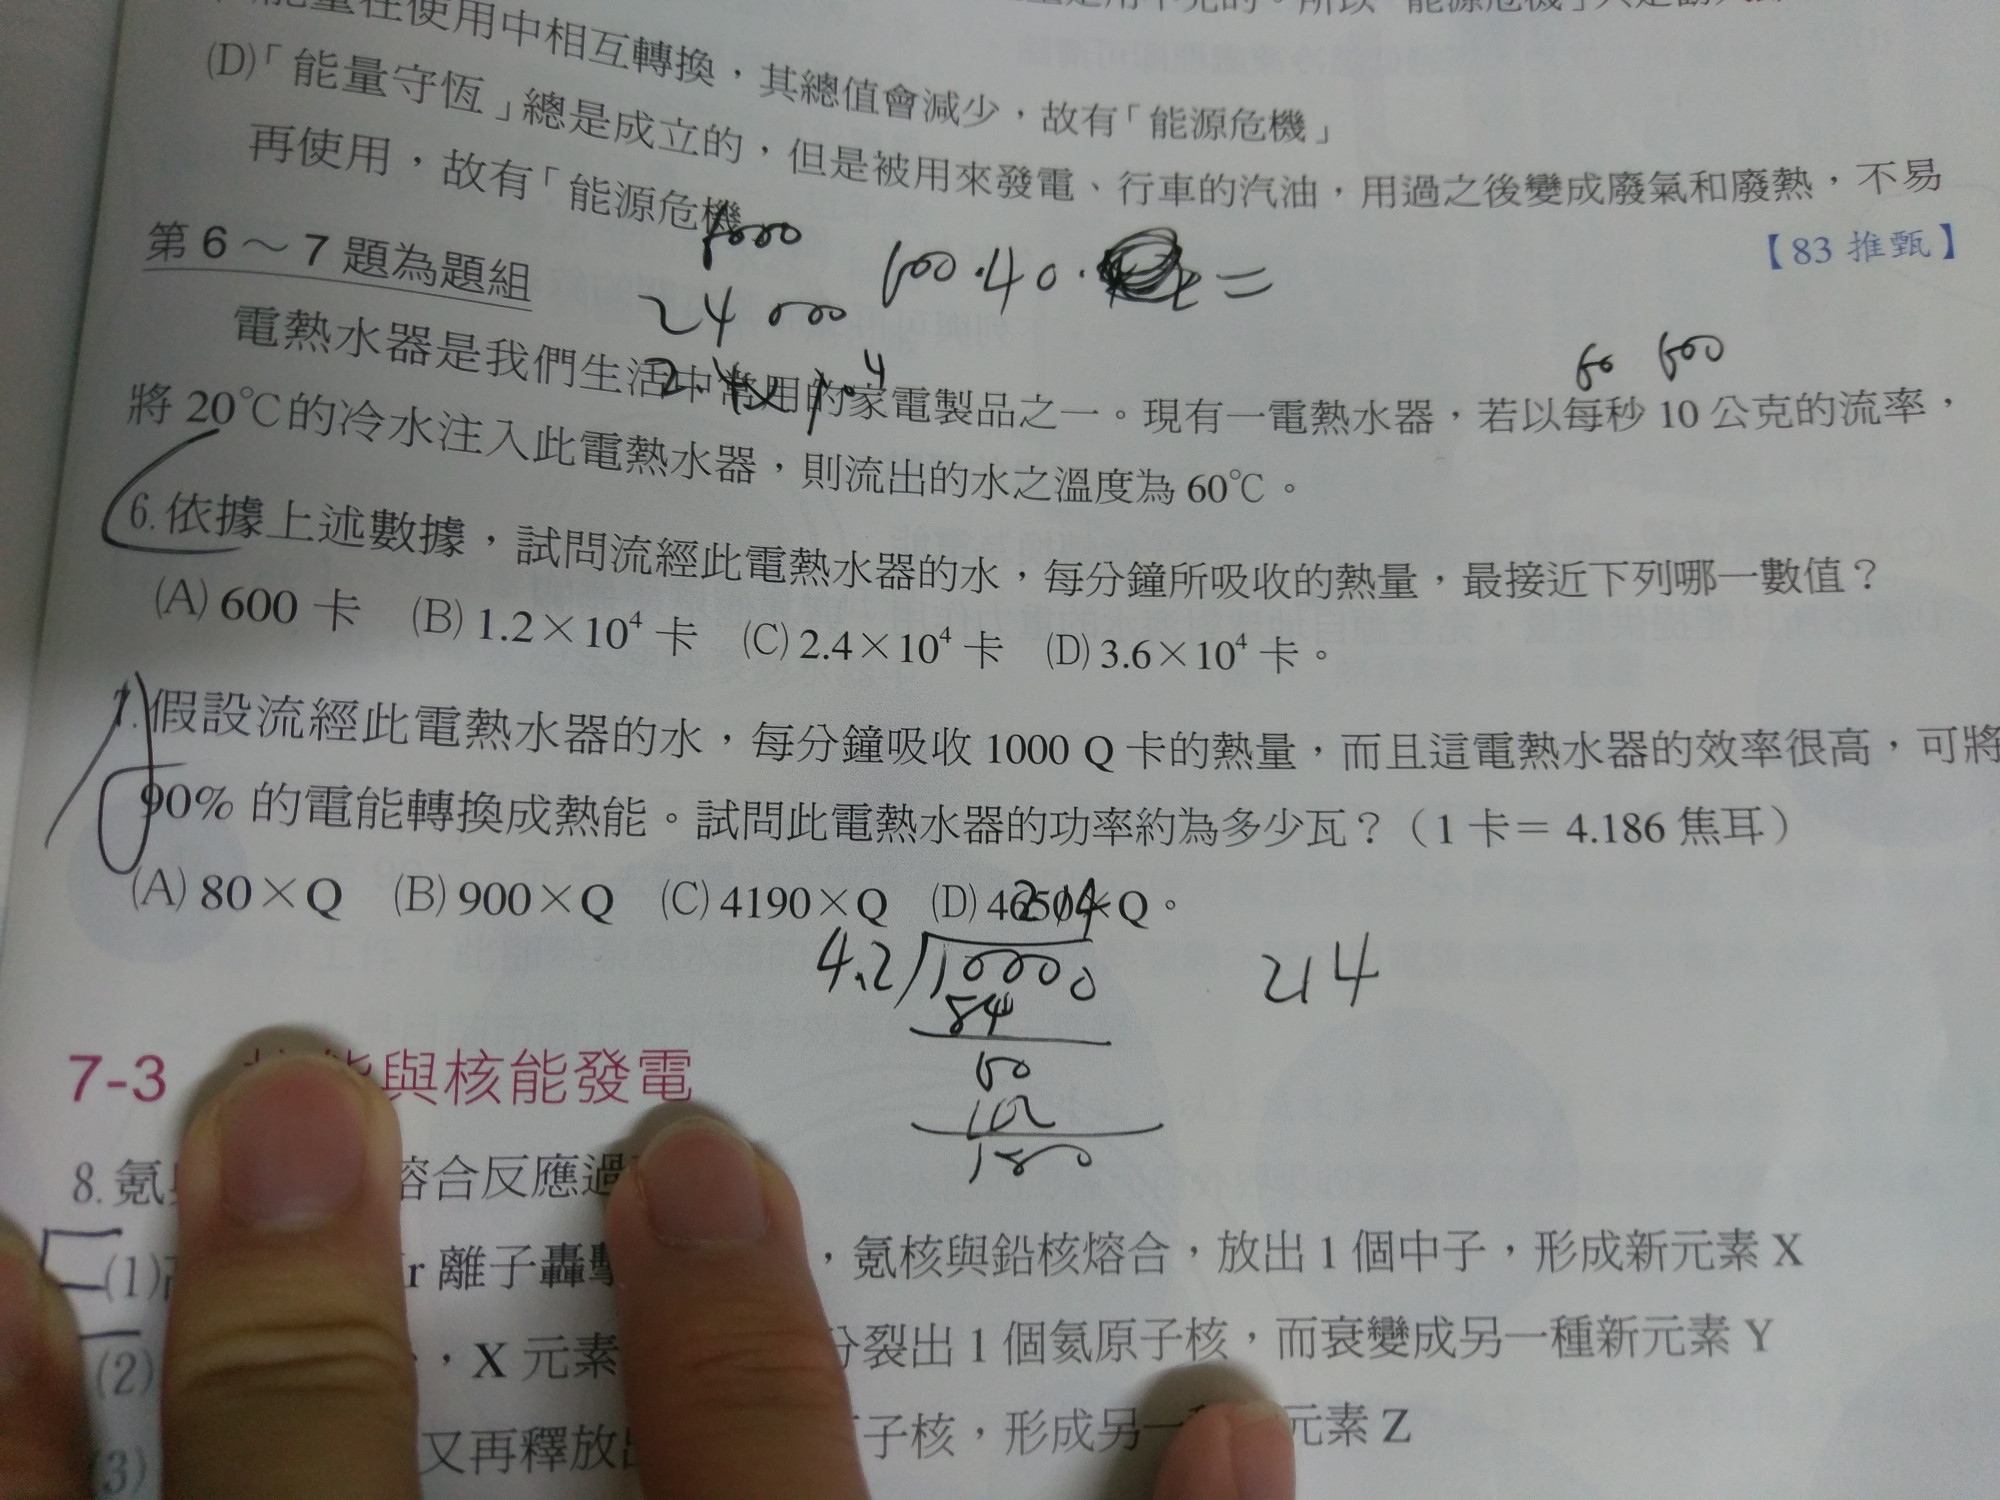 能量在使用中相互轉換，其總值會減少，故有「能源危機」
(D)「能量守恆」總是成立的，但是被用來發電、行車的汽油，用過之後變成廢氣和廢熱，不易
再使用，故有「能源危機
【83 推甄】
第 6～7 題為題組
24000
600·40·
=
2.4×10⁴
60 600
電熱水器是我們生活中常用的家電製品之一。現有一電熱水器，若以每秒 10 公克的流率，
將 20℃的冷水注入此電熱水器，則流出的水之溫度為 60℃。
6. 依據上述數據，試問流經此電熱水器的水，每分鐘所吸收的熱量，最接近下列哪一數值？
(A) 600 卡 (B) 1.2×10⁴ 卡 (C) 2.4×10⁴ 卡 (D) 3.6×10⁴ 卡。
7. 假設流經此電熱水器的水，每分鐘吸收 1000 Q 卡的熱量，而且這電熱水器的效率很高，可將
90% 的電能轉換成熱能。試問此電熱水器的功率約為多少瓦？（1 卡＝ 4.186 焦耳）
(A) 80×Q (B) 900×Q (C) 4190×Q (D) 4650×Q。
4.2 10000 214
84
7-3 能與核能發電
8. 氪 熔合反應過
(1) r 離子轟擊 ，氪核與鉛核熔合，放出 1 個中子，形成新元素 X
(2) ，X 元素 分裂出 1 個氦原子核，而衰變成另一種新元素 Y
(3) 又再釋放出 子核，形成另一 元素 Z